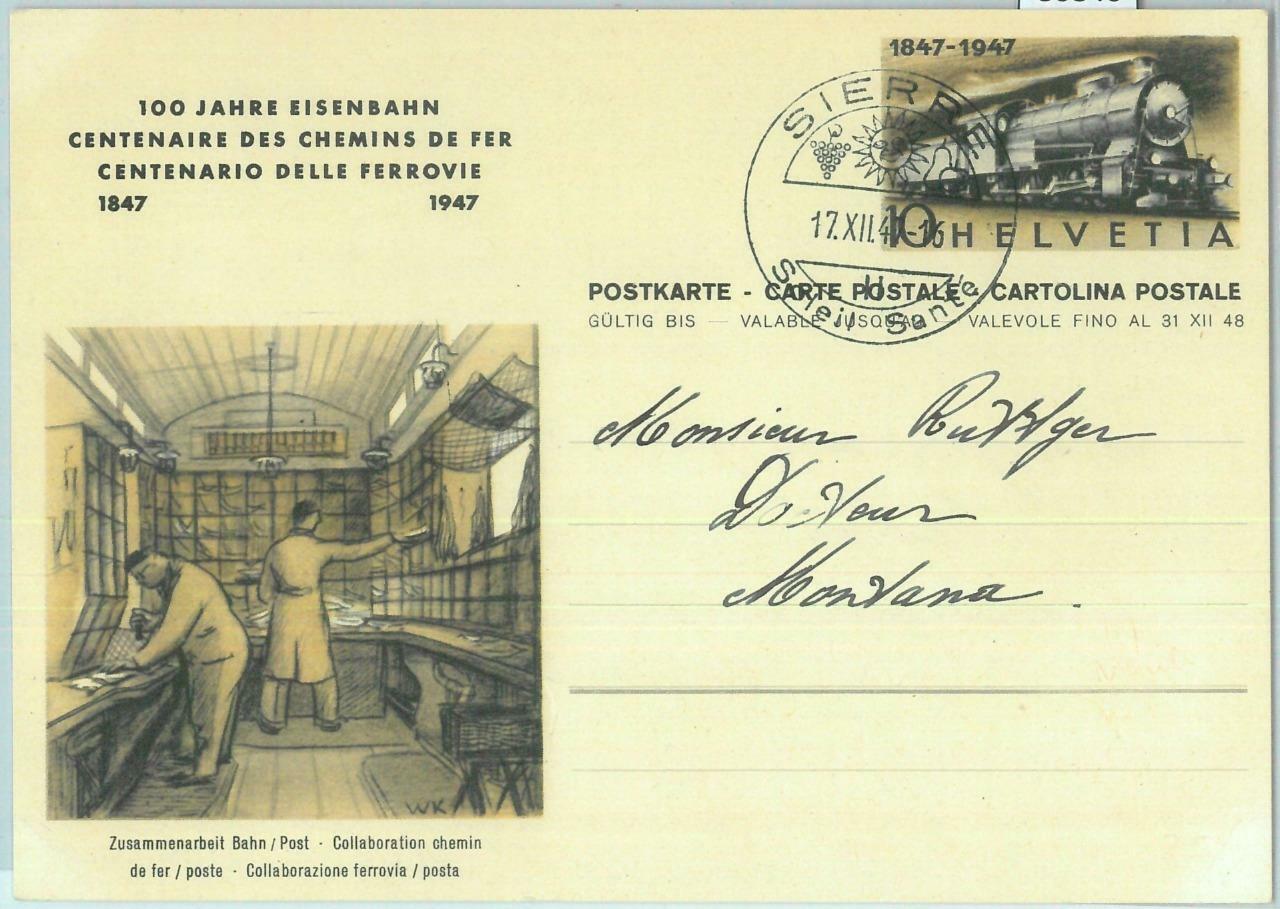 100 JAHRE EISENBAHN
CENTENAIRE DES CHEMINS DE FER
CENTENARIO DELLE FERROVIE
1847 1947
1847-1947
10 HELVETIA
SIERRE
17.XII.47-16
Soleil Santé
POSTKARTE - CARTE POSTALE - CARTOLINA POSTALE
GÜLTIG BIS — VALABLE JUSQU'AU — VALEVOLE FINO AL 31 XII 48
Monsieur Ruttger
Docteur
Montana.
WK
Zusammenarbeit Bahn / Post · Collaboration chemin
de fer / poste · Collaborazione ferrovia / posta